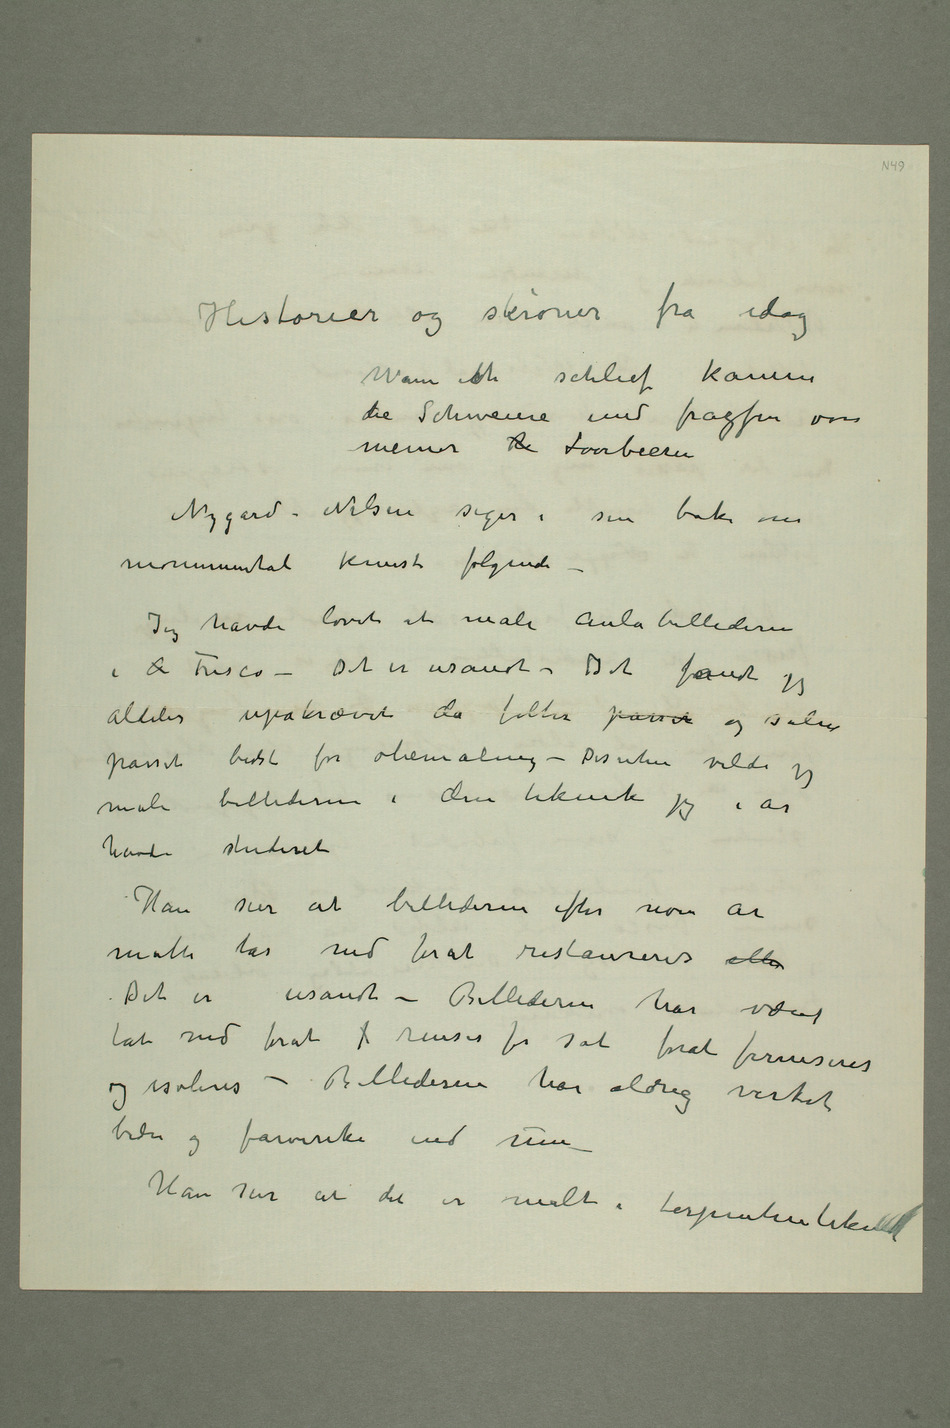 N49
Historier og skrøner fra idag
Wann ich schlief kamen
die Schweine und fragsen von
meiner Loorbeeren
Nygård-Nilsen siger i sin bok om
monumental kunst følgende –
Jeg havde lovet at male Aulabillederne
i Fresco – Det er usandt – Det fandt jeg
aldeles upåkrævet da felter passer og salen
passet bedst for oliemaling – Desuten vilde jeg
male billederne i den teknik jeg i år
havde studeret
Han sier at billederne efter noen år
måtte tas ned forat restaureres eller
Det er usandt – Billederne har været
tat ned forat renses for sot forat ferniseres
og isoleres – Billederne har aldrig virket
bedre og farverike end nu –
Han sier at det er malt i terpentinteknik